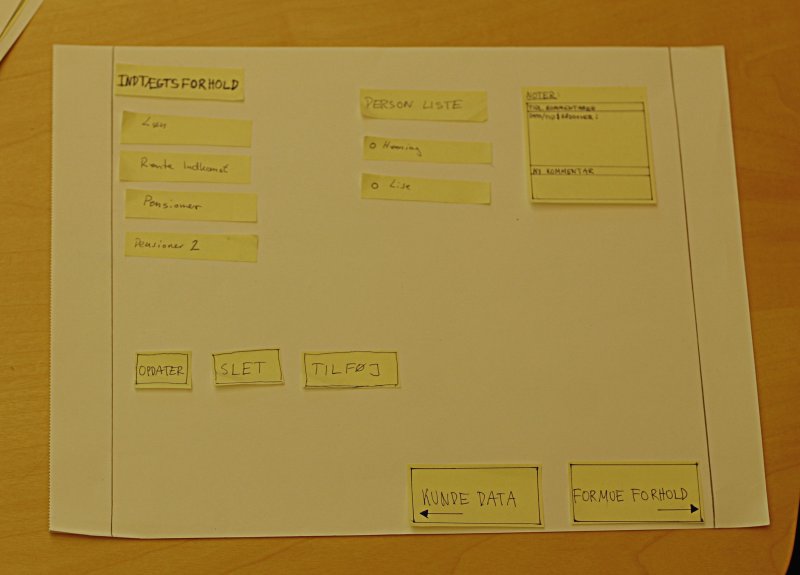 INDTÆGTSFORHOLD
Løn
Rente Indkomst
Pensioner
Pensioner 2
PERSON LISTE
o Henning
o Lise
NOTER:
TIDL. KOMMENTARER
DATO/TID RÅDGIVER:
NY KOMMENTAR
OPDATER
SLET
TILFØJ
KUNDE DATA
FORMUE FORHOLD